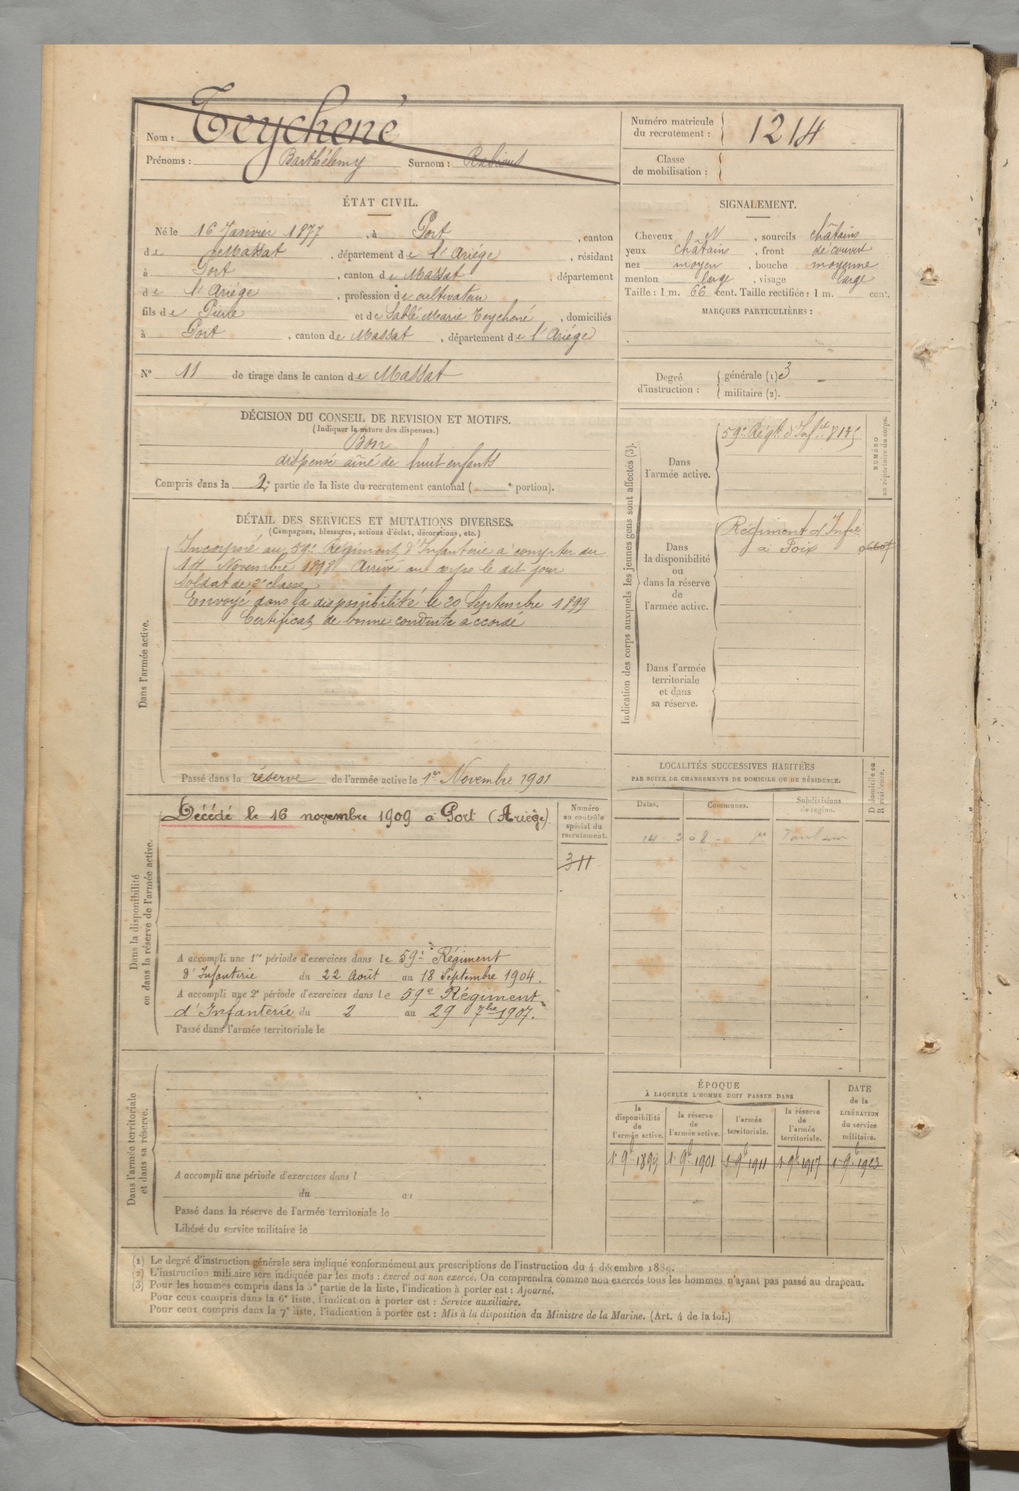 Nom : Teychené
Prénoms : Barthélemy Surnom :
Numéro matricule du recrutement : 1214
Classe de mobilisation :
ÉTAT CIVIL.
Né le 16 Janvier 1877, à Port, canton
de Massat, département de l'Ariége, résidant
à Port, canton de Massat, département
de l'Ariége, profession de cultivateur
fils de Pierre et de Marie Teychené, domiciliés
à Port, canton de Massat, département de l'Ariége
N° 11 de tirage dans le canton de Massat
SIGNALEMENT.
Cheveux, sourcils châtains
yeux châtains, front découvert
nez moyen, bouche moyenne
menton large, visage large
Taille : 1 m. 66 cent. Taille rectifiée : 1 m. cent.
MARQUES PARTICULIÈRES :
Degré d'instruction : générale (1) 3
militaire (2).
DÉCISION DU CONSEIL DE REVISION ET MOTIFS.
(Indiquer la nature des dispenses.)
Bon
dispensé aîné de huit enfants
Compris dans la 2e partie de la liste du recrutement cantonal ( e portion).
DÉTAIL DES SERVICES ET MUTATIONS DIVERSES.
(Campagnes, blessures, actions d'éclat, décorations, etc.)
Dans l'armée active.
Incorporé au 59e Régiment d'Infanterie à compter du
Novembre 1898 Arrivé au corps le dit jour
soldat de 2e classe
Envoyé dans la disponibilité le 20 Septembre 1899
Certificat de bonne conduite accordé
Passé dans la réserve de l'armée active le 1er Novembre 1901
Indication des corps auxquels les jeunes gens sont affectés (3).
NUMÉRO au répertoire du corps.
Dans l'armée active.
59e Régt d'Inf
Dans la disponibilité ou dans la réserve de l'armée active.
Régiment d'Infie
à Foix
Dans l'armée territoriale et dans sa réserve.
Dans la disponibilité ou dans la réserve de l'armée active.
Décédé le 16 novembre 1909 à Port (Ariège).
Numéro au contrôle spécial du recrutement.
311
A accompli une 1re période d'exercices dans le 59e Régiment
d'Infanterie du 22 Août au 18 Septembre 1904.
A accompli une 2e période d'exercices dans le 59e Régiment
d'Infanterie du 2 au 29 7bre 1907.
Passé dans l'armée territoriale le
LOCALITÉS SUCCESSIVES HABITÉES
PAR SUITE DE CHANGEMENTS DE DOMICILE OU DE RÉSIDENCE.
Dates. Communes. Subdivisions de région. D domicile ou R résidence.
Dans l'armée territoriale et dans sa réserve.
A accompli une période d'exercices dans l
du au
Passé dans la réserve de l'armée territoriale le
Libéré du service militaire le
ÉPOQUE
À LAQUELLE L'HOMME DOIT PASSER DANS
la disponibilité de l'armée active.
la réserve de l'armée active.
l'armée territoriale.
la réserve de l'armée territoriale.
DATE de la LIBÉRATION du service militaire.
1 9b 1899 1 9b 1901 1 9b 1911 1 9b 1917 1 9b 1923
(1) Le degré d'instruction générale sera indiqué conformément aux prescriptions de l'instruction du 4 décembre 1889.
(2) L'instruction militaire sera indiquée par les mots : exercé ou non exercé. On comprendra comme non exercés tous les hommes n'ayant pas passé au drapeau.
(3) Pour les hommes compris dans la 5e partie de la liste, l'indication à porter est : Ajourné.
Pour ceux compris dans la 6e liste, l'indication à porter est : Service auxiliaire.
Pour ceux compris dans la 7e liste, l'indication à porter est : Mis à la disposition du Ministre de la Marine. (Art. 4 de la loi.)